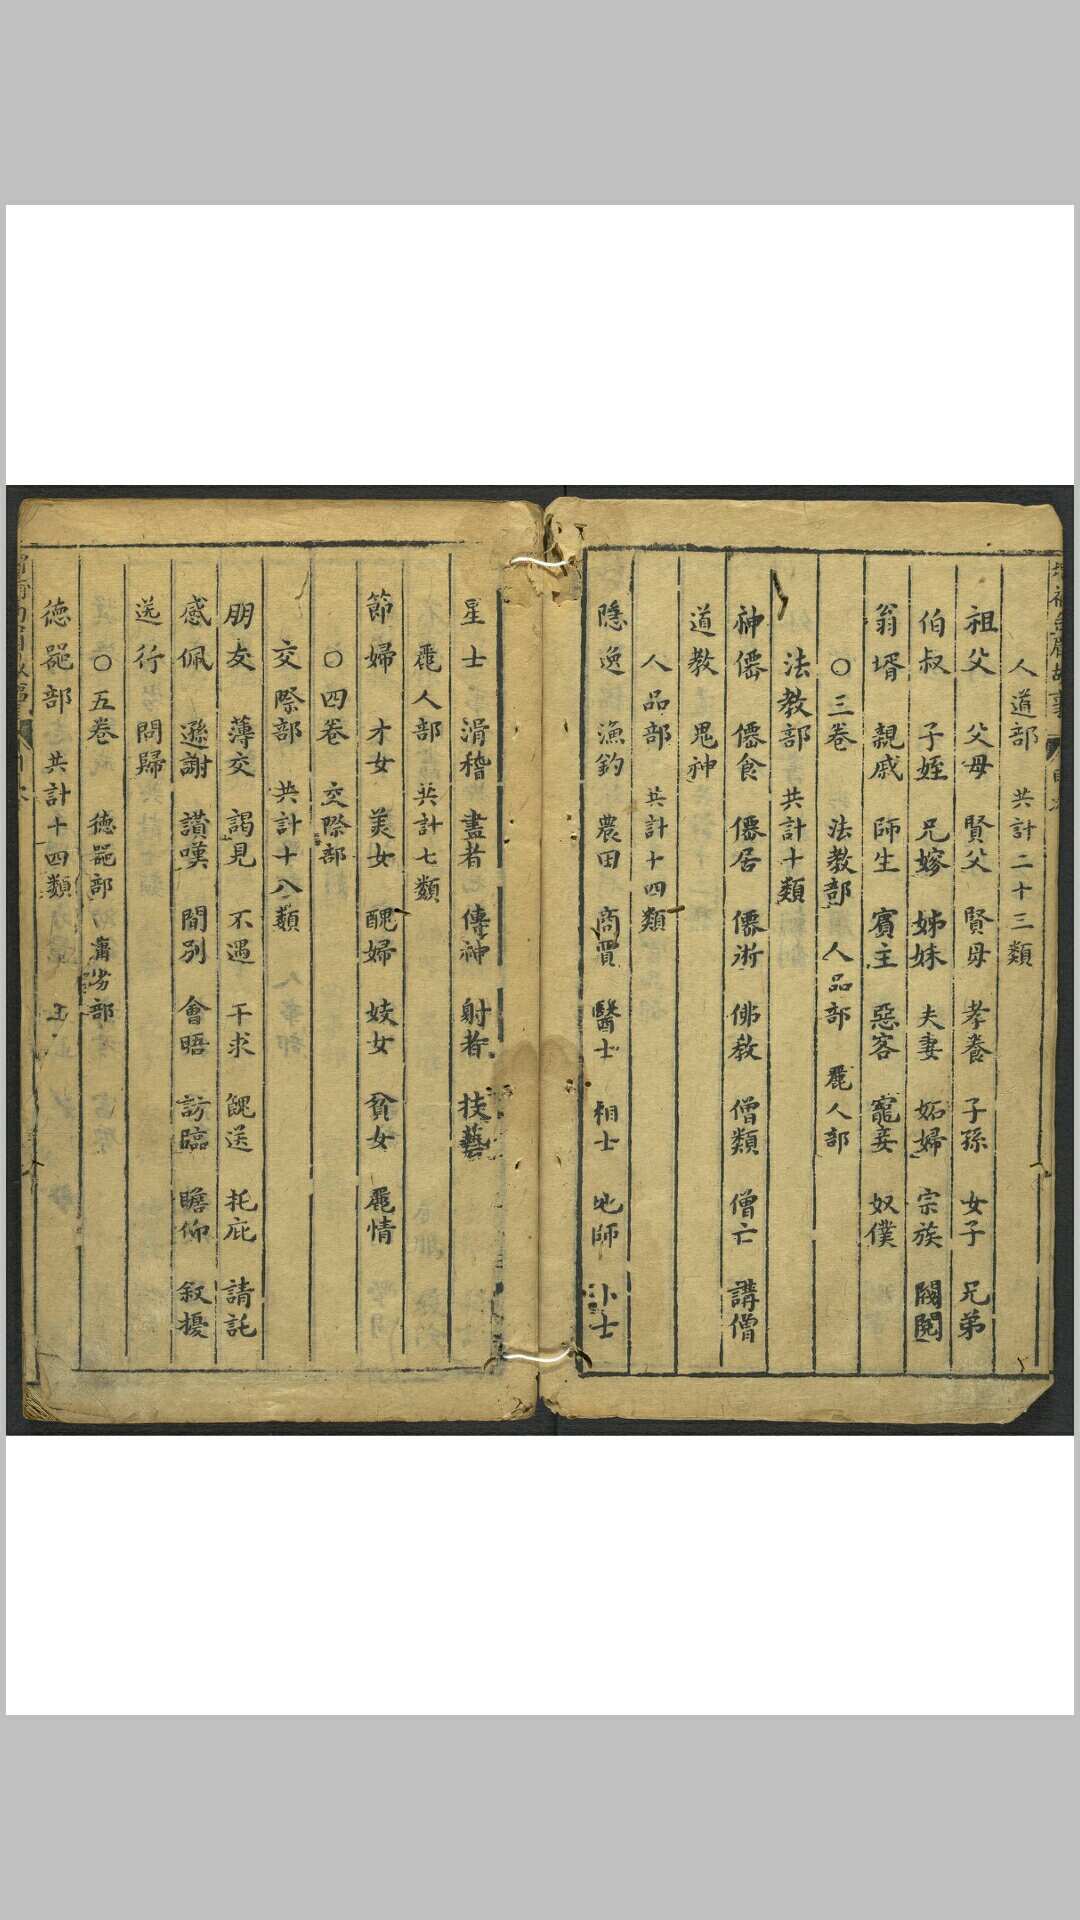 人道部 共計二十三類
祖父 父母 賢父 賢母 孝養 子孫 女子 兄弟
伯叔 子姪 兄嫁 姊妹 夫妻 妬婦 宗族 閥閱
翁壻 親戚 師生 賓主 惡客 寵妾 奴僕
〇三卷 法教部 人品部 麗人部
法教部 共計十類
神僊 僊食 僊居 僊術 佛教 僧類 僧亡 講僧
道教 鬼神
人品部 共計十四類
隱逸 漁釣 農田 商賈 醫士 相士 地師 卜士
星士 滑稽 畫者 傳神 射者 技藝
麗人部 共計七類
節婦 才女 美女 醜婦 妓女 貧女 麗情
〇四卷 交際部
交際部 共計十八類
朋友 薄交 謁見 不遇 干求 餽送 托庇 請託
感佩 遜謝 讚嘆 間別 會晤 訪臨 瞻仰 敘擾
送行 問歸
〇五卷 德器部
德器部 共計十四類